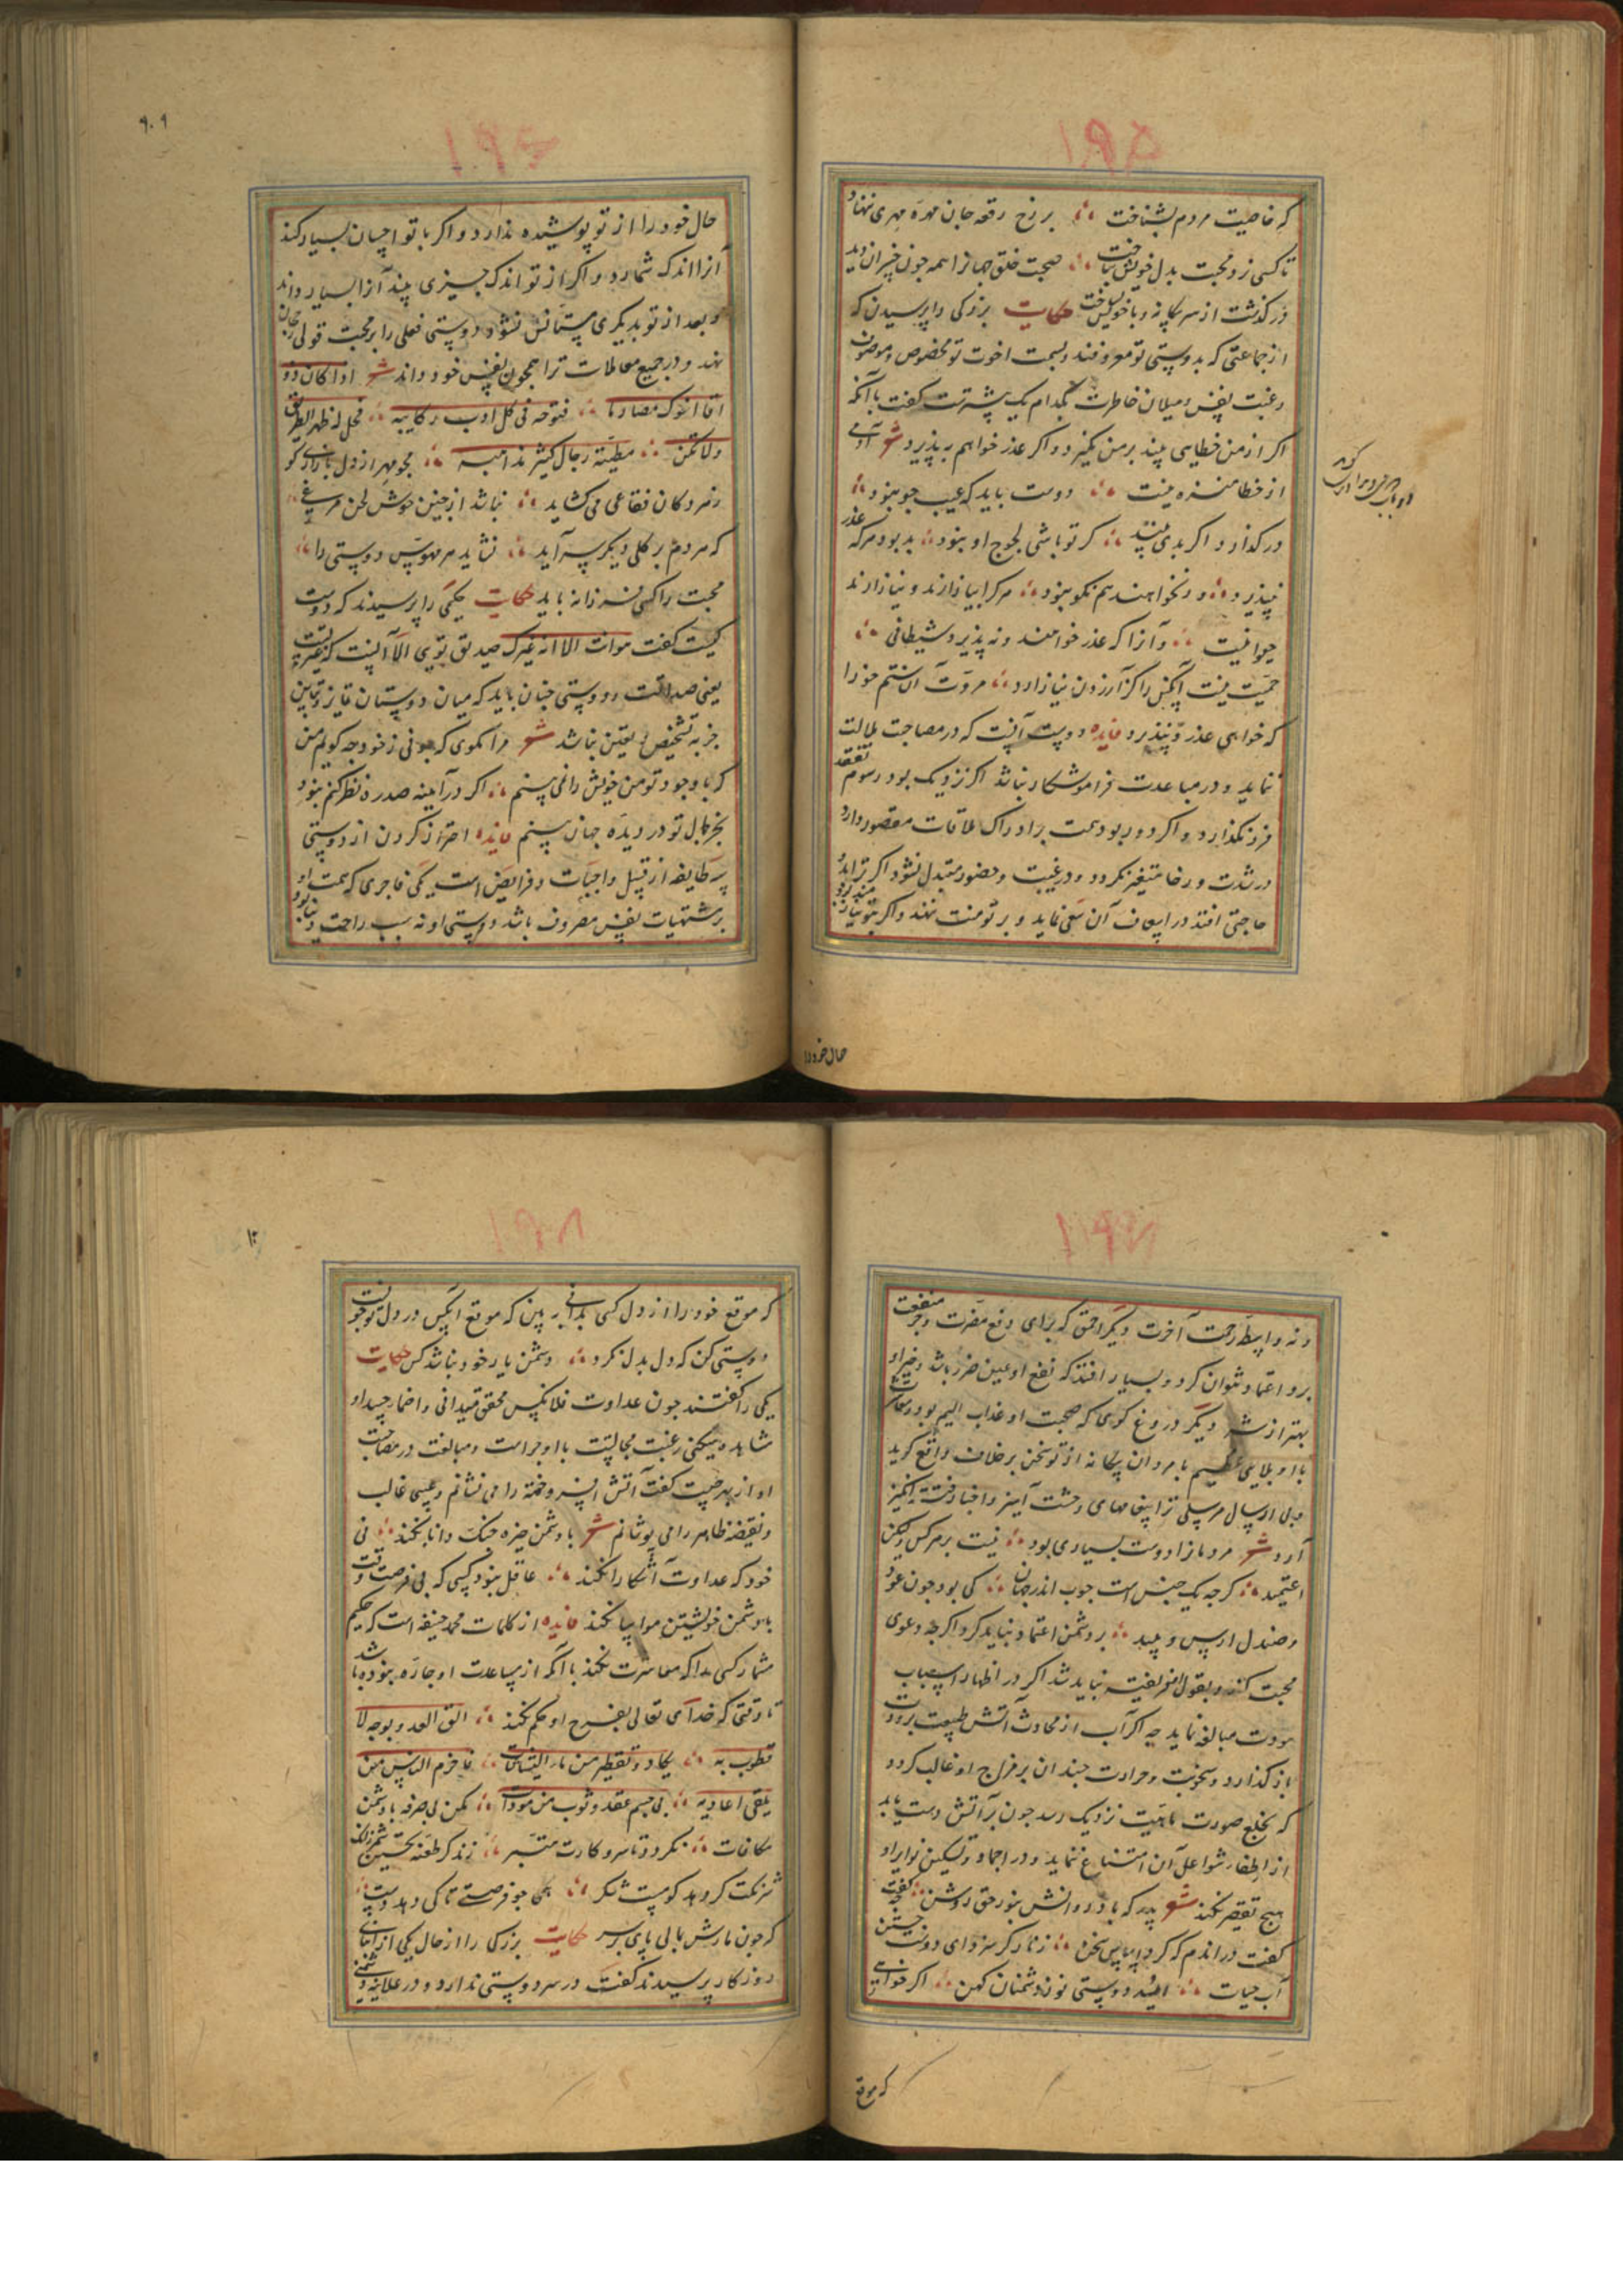 که خاصیت مردم بشناخت ∴ بر رخ رقعه جان مهره مهری ننهاد
تا کسی نرد محبت بدل خویش نباخت ∴ صحبت خلق جهان را همه چون خیران دید
درگذشت از سر بیکانه و با خویش بساخت حکایت بزرکی را پرسیدن که
از جماعتی که بدوستی تو معروفند و بسمت اخوت تو مخصوص و موصوف
رغبت نفس و میلان خاطرت بکدام یک بیشترست کفت با آنکه
اکر از من خطایی بیند بر من نکیرد و اکر عذر خواهم به پذیرد شعر آدمی
از خطا منزه نیست ∴ دوست باید که عیب جو نبود ∴
درکذارد اکر بدی بیند ∴ کر تو باشی لجوج او نبود ∴ بد بود هرکه عذر
نپذیرد ∴ ور نخواهند هم نکو نبود ∴ هرکرا بیازارند و نیازارند
حیوانیست ∴ و آنرا که عذر خواهند و نه پذیرد شیطانی ∴
حمیت نیست آنکس را کز آزردن نیازارد ∴ مروت آن ستم خو را
که خواهی عذر و نپذیرد فایده دوست آنست که در مصاحبت ملالت
ننماید و در مباعدت فراموشکار نباشد اکر نزدیک بود رسوم تفقد
فرو نکذارد و اکر دور بود همت بر ادراک ملاقات مقصور دارد
در شدت و رخا متغیر نکردد و در غیبت و حضور متبدل نشود اکر ترا بدو
حاجتی افتد در اسعاف آن سعی نماید و بر تو منت ننهد و اکر بتو نیازمند بود
حال خود را
۹۰۹
حال خود را از تو پوشیده ندارد و اکر با تو احسان بسیار کند
آنرا اندک شمارد و اکر از تو اندک چیزی بیند آنرا بسیار داند
و بعد از تو بدیکری مستانس نشود و دوستی فعلی را بر محبت قولی رجحان
نهد و در جمیع معاملات ترا همچون نفس خود داند شعر اذا کان ذو
اقا انوک مصادنا ∴ فتوجه فی کل اوب رکایبه ∴ فخل له ظهر الطریق
ولا تکن ∴ مطیته رجال کثیر مذاهبه ∴ مجو مهر از دل بازاری کو
ز هر دکان فقاعی می کشاید ∴ نباشد از چنین خوش لحن مرغی ∴
که هر دم بر کلی دیکر سراید ∴ نشاید هر مهوس دوستی را ∴
محبت را کسی فرزانه باید حکایت حکیمی را پرسیدند که دوست
کیست کفت هو انت الا انه غیرک صدیق توی الا آنست که غیر تست
یعنی صداقت و دوستی چنان باید که میان دوستان تمایز و تباین
جز به تشخیص و تعین نباشد شعر مرا کوی که چونی ز خود چه کویم من
که با وجود تو من خویش را نمی بینم ∴ اکر در آینه صد ره نظر کنم نبود
بجز جمال تو در دیده جهان بینم فایده احتراز کردن از دوستی
سه طایفه از قبیل واجبات و فرایض است یکی فاجری که همت او
بر مشتهیات نفس مصروف باشد دوستی او نه سبب راحت دنیا بود
و نه واسطه رحمت آخرت دیکر احمق که برای دفع مضرت و جر منفعت
برو اعتماد نتوان کرد و بسیار افتد که نفع او عین ضرر باشد و خیر او
بهتر از شر دیکر دروغ کوی که صحبت او عذاب الیم بود و معاشرت
با او بلایی عظیم با مردان بیکانه از تو سخن بر خلاف واقع کوید
و بی ارسال مرسلی ترا پیغامهای وحشت آمیز و اخبار فتنه انکیز
آرد شعر مرد ما را دوست بسیاری بود ∴ نیست بر هر کس ولیکن
اعتمید ∴ کرچه یک جنس است چوب اندر جهان ∴ کی بود چون عود
و صندل ارس و بید ∴ بر دشمن اعتماد نباید کرد اکرچه دعوی
محبت کند و بقول او فریفته نباید شد اکر در اظهار اسباب
مودت مبالغه نماید چه اکر آب از محادث آتش طبیعت برودت
باز کذارد و سخونت و حرارت چندان بر مزاج او غالب کردد
که بخلع صورت ماهیت نزدیک رسد چون بر آتش دست یابد
از اطفاء شواعل آن امتناع ننماید و در اخماد و تسکین نوایر او
هیچ تقصیر نکند شعر پدر که باد روانش بنور حق روشن ∴
کفت در اندم که کرد اساس سخن ∴ زنار کر سزدای دوست جستن
آب حیات ∴ امید دوستی نو ز دشمنان کهن ∴ اکر خواهی
که موقع
که موقع خود را از دل کسی بدانی به بین که موقع آنکس در دل تو چونست
دوستی کن که دل بدل نکرد ∴ دشمن یار خود نباشد کس حکایت
یکی را کفتند چون عداوت فلانکس محقق میدانی و اضمار حسد او
مشاهده میکنی رغبت مجالست با او چراست و مبالغت در مصاحبت
او از بهر چیست کفت آتش افروخته را می نشانم و عیبی غالب
و نقیضه ظاهر را می پوشانم شعر با دشمن چیره جنک دانا نکند ∴ نی
خود که عداوت آشکارا نکند ∴ عاقل نبود کسی که بی فرصت وقت
با دشمن خویشتن مواسا نکند فایده از کلمات محمد حنیفه است که حکیم
مشمار کسی را که معاشرت نکند با آنکه از مساعدت او چاره نبوده باشد
تا وقتی که خدای تعالی بفرح او حکم نکند ∴ الق العدو بوجه لا
قطوب به ∴ یکاد و تقطر من ماء البشاشات ∴ فاحزم الناس من
یلقی اعادیه ∴ فی جسم عقد و ثوب من مودات ∴ مکن بی صرفه با دشمن
مکافات ∴ نکردد تا سرو کارت میسر ∴ زند کر طعنه نخستین
شربت کر دهد کویست شکر ∴ همی جو فرصتی تا کی دهد دست ∴
که چون مارش بمالی پای بر سر حکایت بزرکی را از حال یکی از ابنای
روزکار پرسیدند کفت در سر دوستی ندارد و در علانیه دشمنی